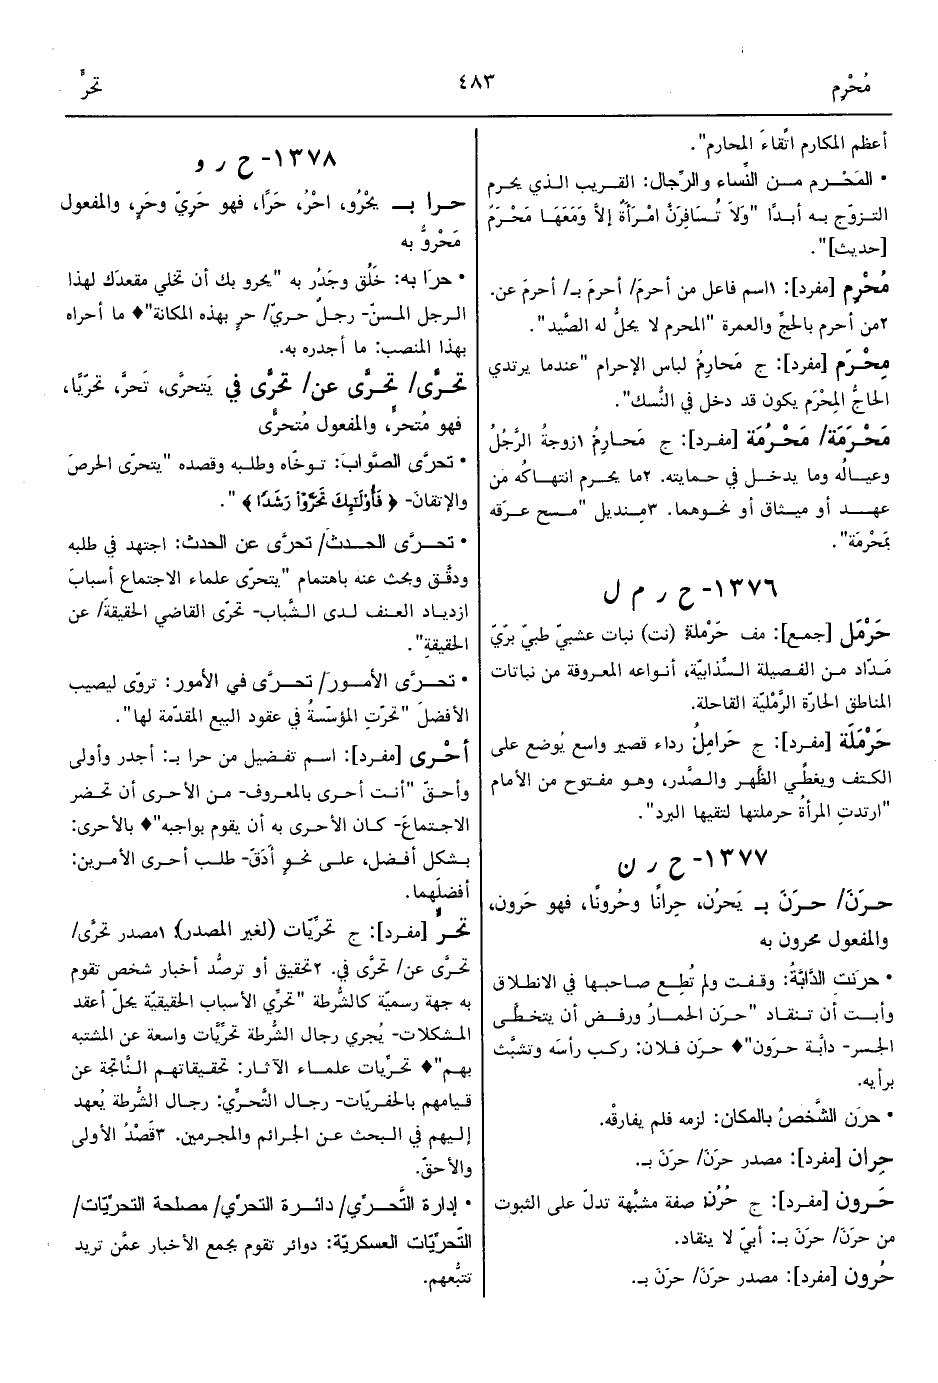 مُحْرِم
٤٨٣
تحرٍّ
أعظم المكارم اتِّقاءَ المحارم".
• المَحْرم من النِّساء والرِّجال: القريب الذي يحرم
التزوّج به أبدًا "وَلاَ تُسَافِرَنَّ امْرَأَةٌ إلاَّ وَمَعَهَا مَحْرَمٌ
[حديث]".
مُحْرِم [مفرد]: ١اسم فاعل من أحرمَ/ أحرمَ بـ/ أحرمَ عن.
٢من أحرم بالحجِّ والعمرة "المحرم لا يحلُّ له الصَّيد".
مِحْرَم [مفرد]: ج مَحارِمُ لباس الإحرام "عندما يرتدي
الحاجُّ المِحْرَم يكون قد دخل في النُّسك".
مَحْرَمَة/ مَحْرُمَة [مفرد]: ج مَحارِمُ ١زوجةُ الرَّجُلُ
وعيالُه وما يدخل في حمايته. ٢ما يحرم انتهاكُه من
عهد أو ميثاق أو نحوهما. ٣منديل "مسح عرَقه
بمَحْرمَة".
١٣٧٦- ح ر م ل
حَرْمَل [جمع]: مف حَرْملة (نت) نبات عشبيّ طبيّ بَرّيّ
مَدّاد من الفصيلة السَّذابيّة، أنواعه المعروفة من نباتات
المناطق الحارّة الرَّمْليّة القاحلة.
حَرْمَلَة [مفرد]: ج حَرامِلُ رداء قصير واسع يُوضع على
الكتف ويغطِّي الظَّهر والصَّدر، وهو مفتوح من الأمام
"ارتدتِ المرأةُ حرملتها لتقيها البرد".
١٣٧٧- ح ر ن
حرَنَ/ حرَنَ بـ يَحرُن، حِرانًا وحُرونًا، فهو حَرون،
والمفعول محرون به
• حرنت الدَّابَّةُ: وقفت ولم تُطِع صاحبها في الانطلاق
وأبت أن تنقاد "حرَن الحمارُ ورفض أن يتخطَّى
الجسر- دابَّة حرون"♦ حرَن فلان: ركب رأسَه وتشبَّث
برأيه.
• حرَن الشَّخصُ بالمكان: لزمه فلم يفارقْه.
حِران [مفرد]: مصدر حرَنَ/ حرَنَ بـ.
حَرون [مفرد]: ج حُرُن صفة مشبَّهة تدلّ على الثبوت
من حرَنَ/ حرَنَ بـ: أبيّ لا ينقاد.
حُرون [مفرد]: مصدر حرَنَ/ حرَنَ بـ.
١٣٧٨- ح ر و
حرا بـ يحْرُو، احْرُ، حَرًا، فهو حَريّ وحَرٍ، والمفعول
مَحْروٌّ به
• حرَا به: خَلُق وجَدُر به "يحرو بك أن تخلي مقعدَك لهذا
الرجل المسنّ- رجلٌ حريّ/ حرٍ بهذه المكانة"♦ ما أحراه
بهذا المنصب: ما أجدره به.
تحرَّى/ تحرَّى عن/ تحرَّى في يَتحرَّى، تَحرَّ، تحرّيًا،
فهو مُتحرٍّ، والمفعول مُتحرًّى
• تحرَّى الصَّوابَ: توخّاه وطلبه وقصده "يتحرّى الحرصَ
والإتقانَ- ﴿فَأُولَئِكَ تَحَرَّوْا رَشَدًا﴾".
• تحرَّى الحدثَ/ تحرَّى عن الحدث: اجتهد في طلبه
ودقَّق وبحث عنه باهتمام "يتحرّى علماء الاجتماع أسبابَ
ازدياد العنف لدى الشَّباب- تحرّى القاضي الحقيقةَ/ عن
الحقيقةِ".
• تحرَّى الأمورَ/ تحرَّى في الأمور: تروّى ليصيب
الأفضلَ "تحرّتِ المؤسّسةُ في عقود البيع المقدّمة لها".
أَحْرى [مفرد]: اسم تفضيل من حرا بـ: أجدر وأولى
وأحقّ "أنت أحرى بالمعروف- من الأحرى أن تحضر
الاجتماعَ- كان الأحرى به أن يقوم بواجبه"♦ بالأحرى:
بشكل أفضل، على نحوٍ أَدَقّ- طلب أحرى الأمرين:
أفضلَهما.
تحرٍّ [مفرد]: ج تحرِّيات (لغير المصدر): ١مصدر تحرَّى/
تحرَّى عن/ تحرَّى في. ٢تحقيق أو ترصُّد أخبار شخص تقوم
به جهة رسميّة كالشُّرطة "تحرِّي الأسباب الحقيقيّة يحلّ أعقد
المشكلات- يُجري رجال الشُّرطة تحرِّيَّات واسعة عن المشتبه
بهم"♦ تحرِّيات علماء الآثار: تحقيقاتهم النَّاتجة عن
قيامهم بالحفريّات- رجال التَّحرِّي: رجال الشُّرطة يُعهد
إليهم في البحث عن الجرائم والمجرمين. ٣قَصْدُ الأولى
والأحقّ.
• إدارة التَّحرِّي/ دائرة التحرِّي/ مصلحة التحريّات/
التّحريّات العسكريّة: دوائر تقوم بجمع الأخبار عمَّن تريد
تتبُّعهم.